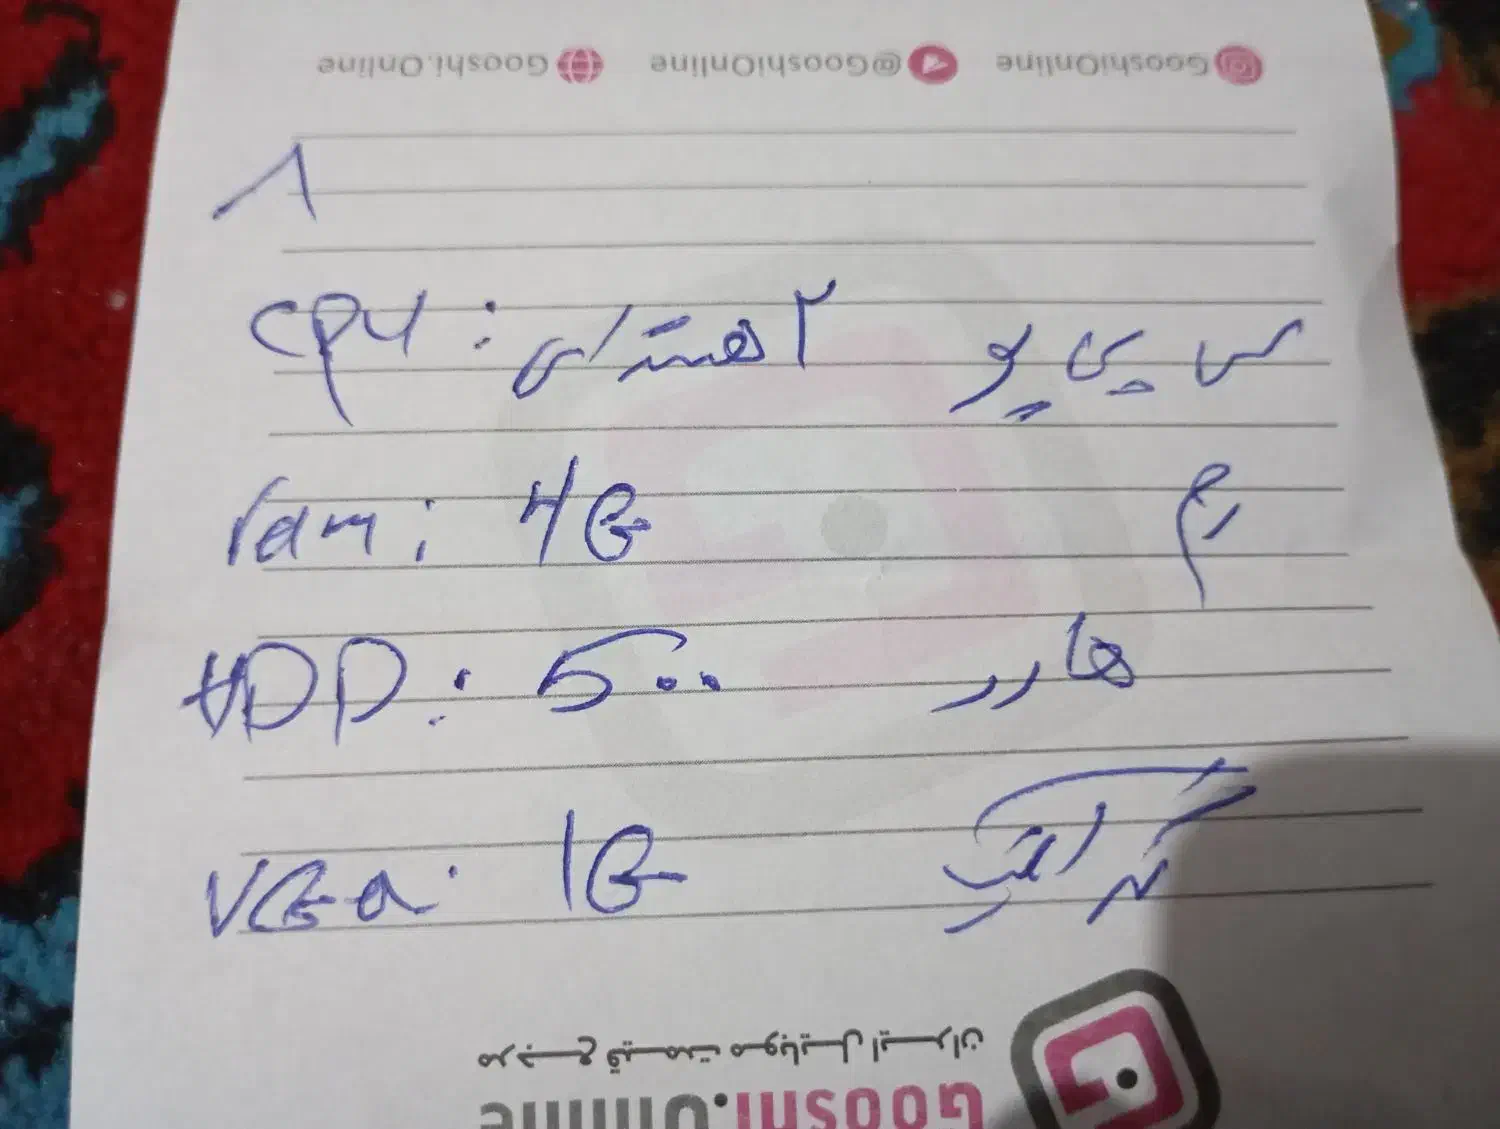 GooshiOnline @GooshiOnline Gooshi.Online
۸
CPU : ۲ هسته‌ای سی پی یو
ram : 4G رم
HDD : 500 هارد
VGa : 1G گرافیک
مرجع قیمت موبایل ایران
Gooshi.Online